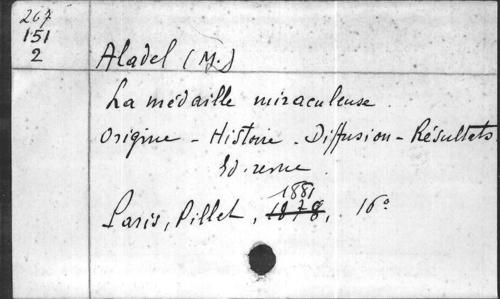 267
151
2
Aladel (M.)
La médaille miraculeuse.
Origine - Histoire - Diffusion - Résultats
Ed. revue
1881
Paris, Pillet, 1878, 16°